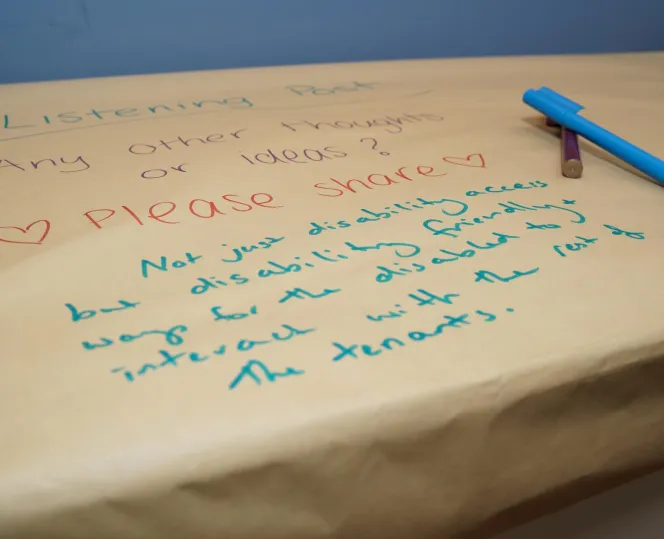 Listening Post
Any other thoughts
or ideas?
♡ Please share ♡
Not just disability access
but disability friendly +
ways for the disabled to
interact with the rest of
the tenants.